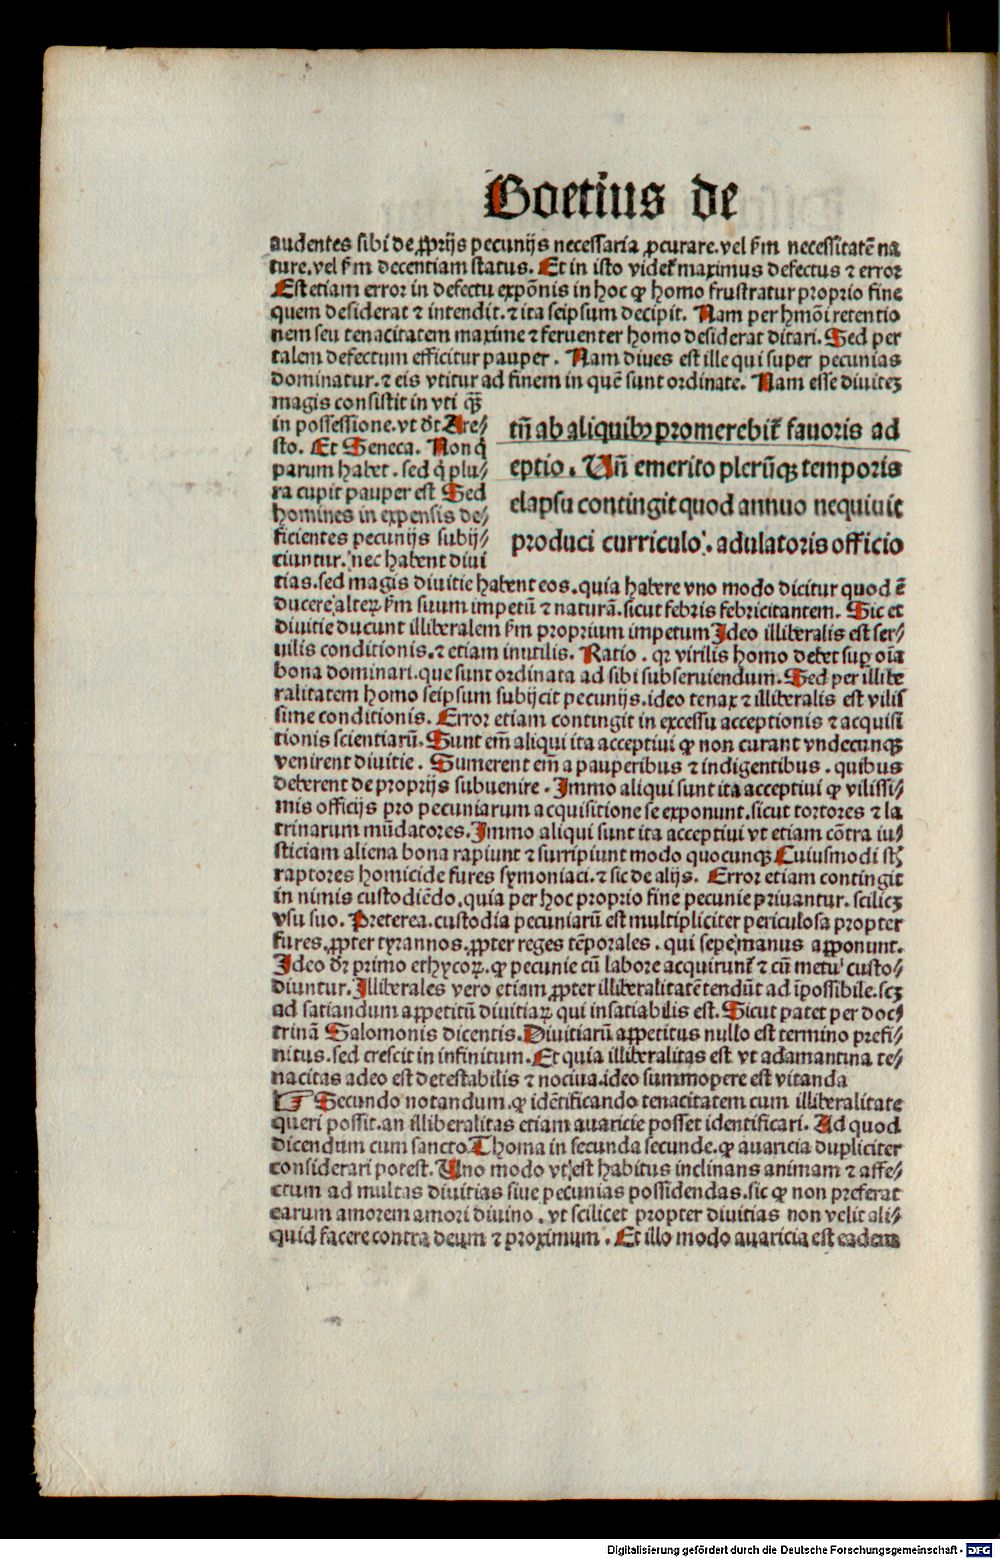 Boetius de
audentes sibi de ꝓprijs pecunijs necessaria ꝓcurare. vel ẜm necessitatē na
ture. vel ẜm decentiam status. Et in isto videt᷑ maximus defectus ⁊ error
Est etiam error in defectu expōnis in hoc ꝙ homo frustratur proprio fine
quem desiderat ⁊ intendit. ⁊ ita seipsum decipit. Nam per hmōi retentio
nem seu tenacitatem maxime ⁊ feruenter homo desiderat ditari. Sed per
talem defectum efficitur pauper. Nam diues est ille qui super pecunias
dominatur. ⁊ eis vtitur ad finem in quē sunt ordinate. Nam esse diuitē
magis consistit in vti ꝙ̄
in possessione. vt dt Are⸗
sto. Et Seneca. Non q̇
parum habet. sed q̇ plu⸗
ra cupit pauper est Sed
homines in expensis de⸗
ficientes pecunijs subij⸗
ciuntur. nec habent diui
tn̄ ab aliquibꝰ promerebit᷑ fauoris ad
eptio. Vn̄ emerito plerūqꝫ temporis
elapsu contingit quod annuo nequiuit
produci curriculo. adulatoris officio
tias. sed magis diuitie habent eos. quia habere vno modo dicitur quod ē
ducere alteꝝ ẜm suum impetū ⁊ naturā. sicut febris febricitantem. Sic et
diuitie ducunt illiberalem ẜm proprium impetum Ideo illiberalis est ser⸗
uilis conditionis. ⁊ etiam inutilis. Ratio. qꝛ virilis homo debet suꝑ oīa
bona dominari. que sunt ordinata ad sibi subseruiendum. Sed per illibe
ralitatem homo seipsum subijcit pecunijs. ideo tenax ⁊ illiberalis est vilis
sime conditionis. Error etiam contingit in excessu acceptionis ⁊ acquisi
tionis scientiarū. Sunt em̄ aliqui ita acceptiui ꝙ non curant vndecunqꝫ
venirent diuitie. Sumerent em̄ a pauperibus ⁊ indigentibus. quibus
deberent de proprijs subuenire. Immo aliqui sunt ita acceptiui ꝙ vilissi⸗
mis officijs pro pecuniarum acquisitione se exponunt. sicut tortores ⁊ la
trinarum mūdatores. Immo aliqui sunt ita acceptiui vt etiam cōtra iu⸗
sticiam aliena bona rapiunt ⁊ surripiunt modo quocunqꝫ Cuiusmodi st̄
raptores homicide fures symoniaci. ⁊ sic de alijs. Error etiam contingit
in nimis custodiēdo. quia per hoc proprio fine pecunie priuantur. scilicꝫ
vsu suo. Preterea. custodia pecuniarū est multipliciter periculosa propter
fures. ꝓpter tyrannos. ꝓpter reges tēporales. qui sepe manus apponunt.
Ideo dꝛ primo ethycoꝝ. ꝙ pecunie cū labore acquirunt᷑ ⁊ cū metu custo⸗
diuntur. Illiberales vero etiam ꝓpter illiberalitatē tendūt ad īpossibile. scꝫ
ad satiandum appetitū diuitiaꝝ qui insatiabilis est. Sicut patet per doc⸗
trinā Salomonis dicentis. Diuitiarū appetitus nullo est termino prefi⸗
nitus. sed crescit in infinitum. Et quia illiberalitas est vt adamantina te⸗
nacitas adeo est detestabilis ⁊ nociua. ideo summopere est vitanda
☞ Secundo notandum. ꝙ idētificando tenacitatem cum illiberalitate
queri possit. an illiberalitas etiam auaricie posset identificari. Ad quod
dicendum cum sancto Thoma in secunda secunde. ꝙ auaricia dupliciter
considerari potest. Uno modo vt est habitus inclinans animam ⁊ affe⸗
ctum ad multas diuitias siue pecunias possidendas. sic ꝙ non preferat
earum amorem amori diuino. vt scilicet propter diuitias non velit ali⸗
quid facere contra deum ⁊ proximum. Et illo modo auaricia est eadem
Digitalisierung gefördert durch die Deutsche Forschungsgemeinschaft - DFG